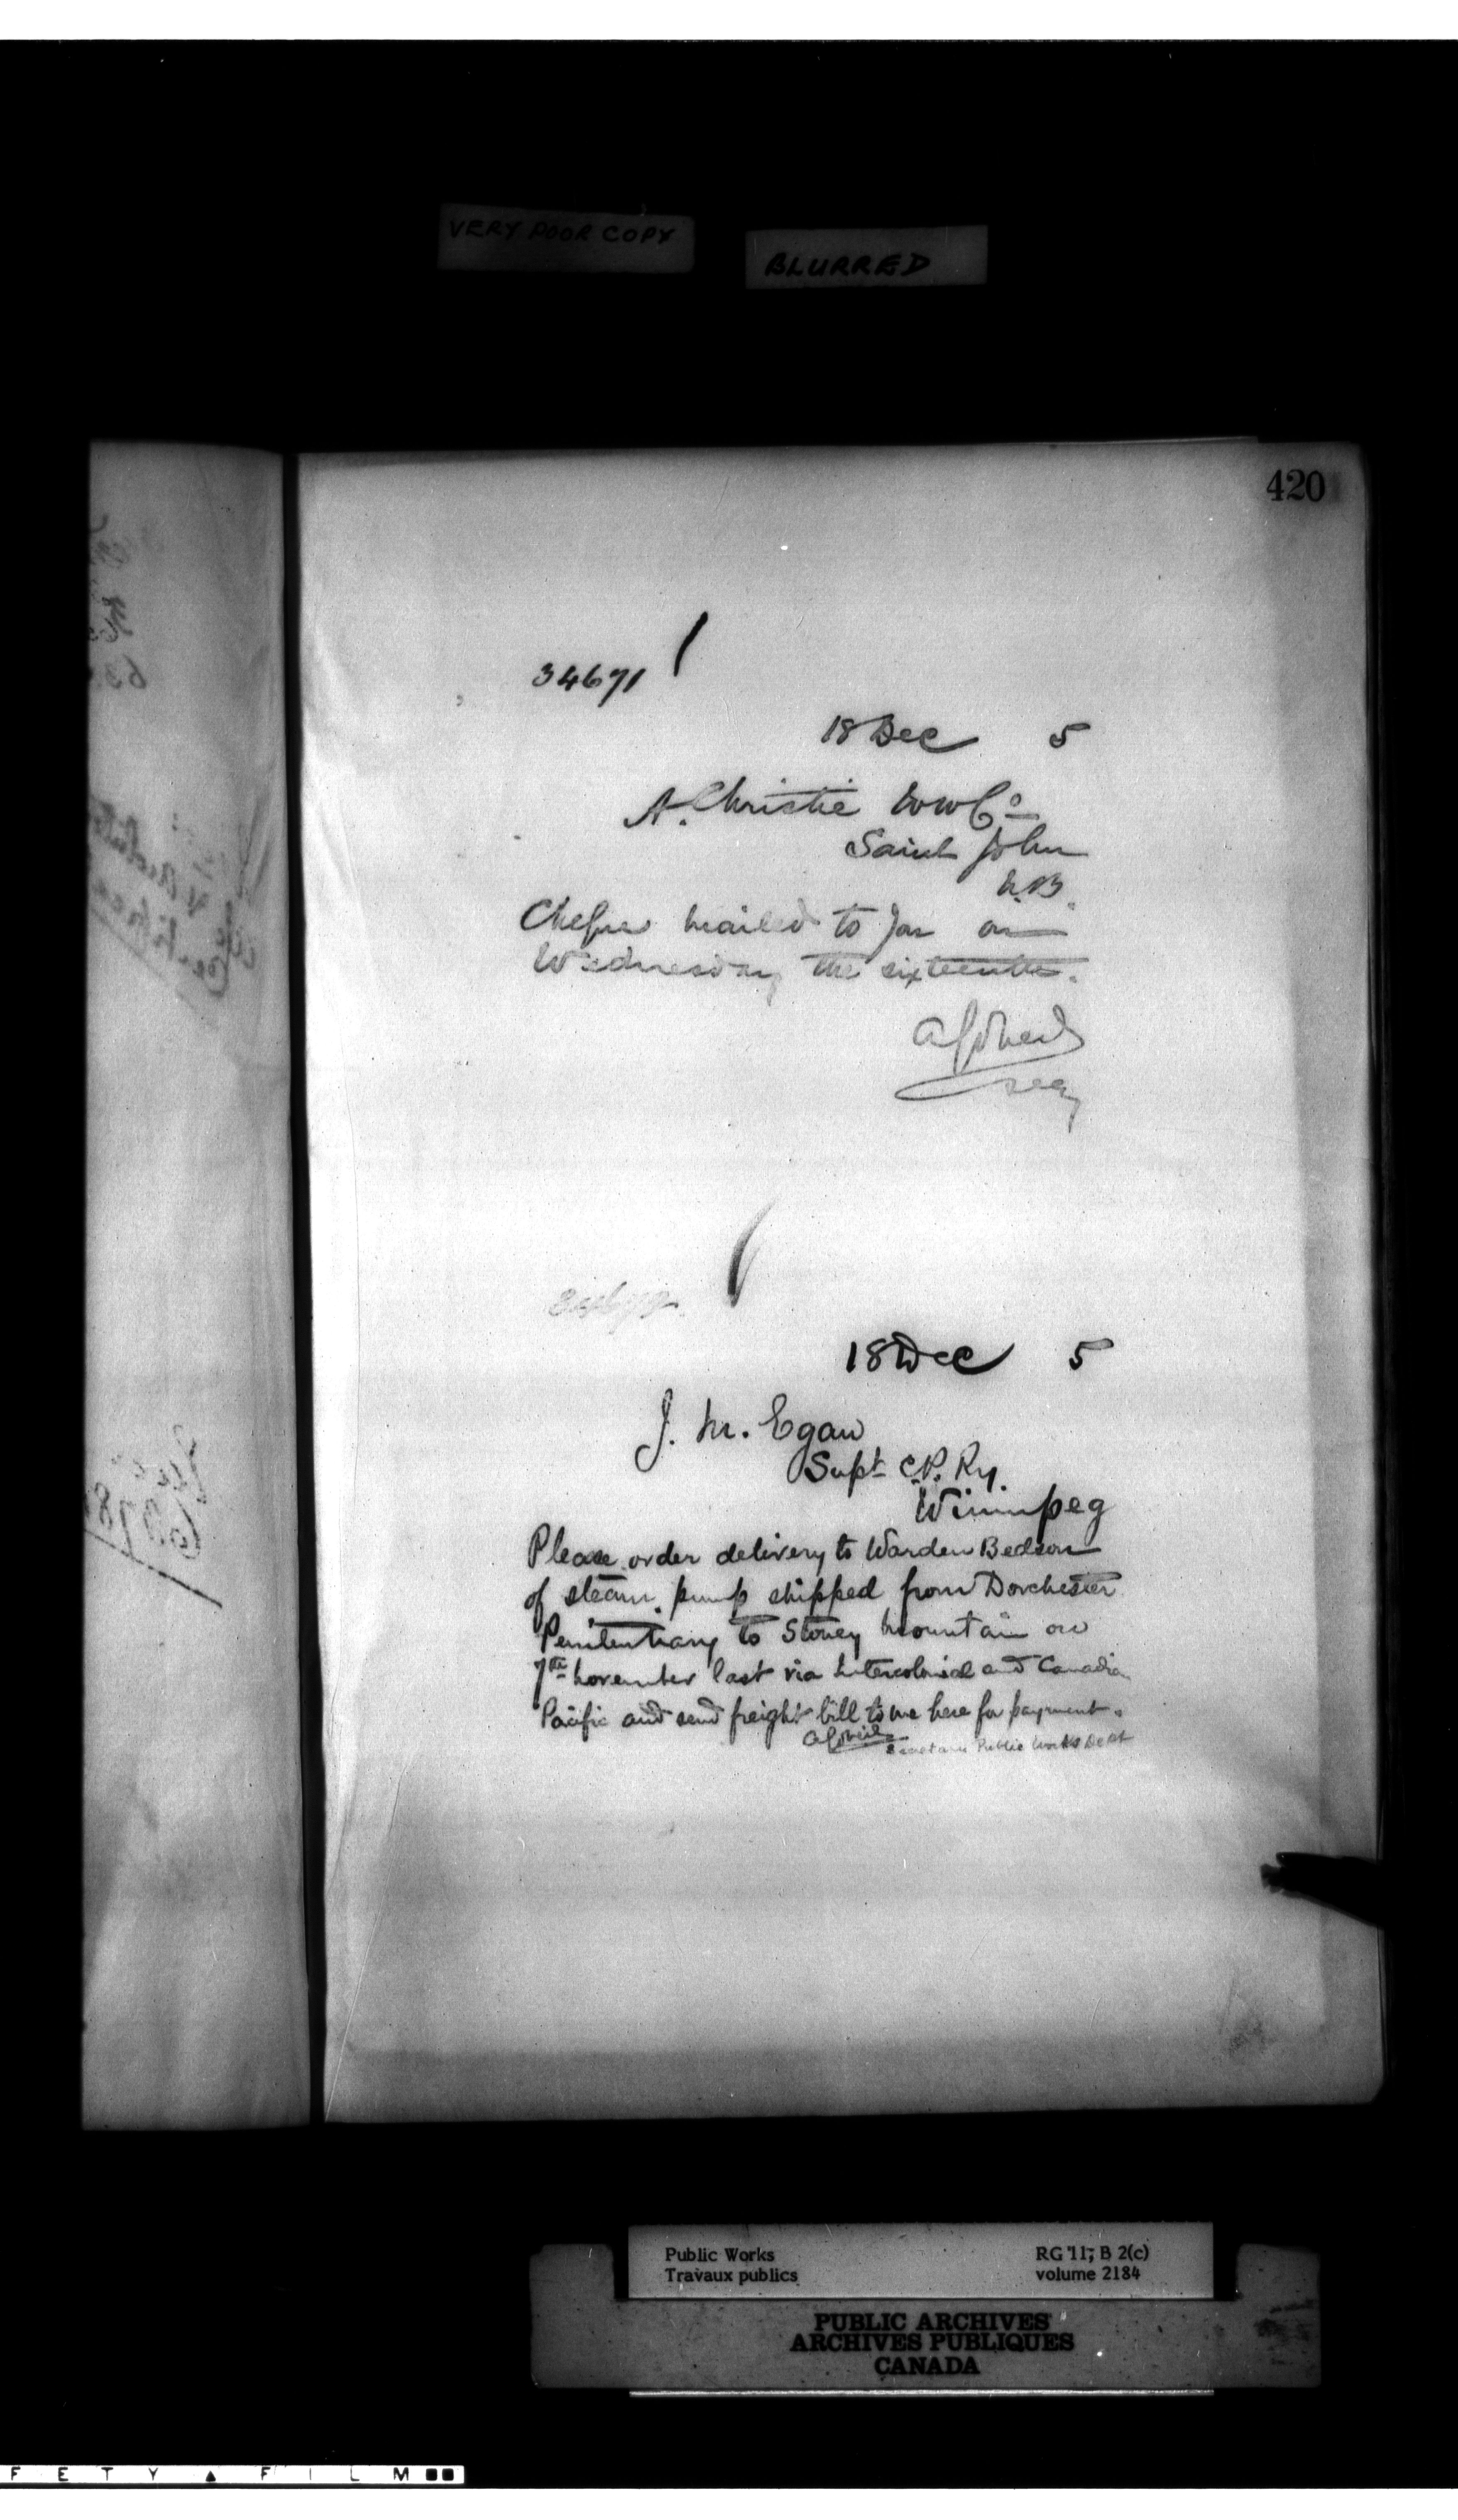 VERY POOR COPY
BLURRED
420
34671
18 Dec 5
A. Christie WW Co
Saint John
N.B.
Cheque mailed to you on
Wednesday the sixteenth.
Secy
18 Dec 5
J. M. Egan
Supt C.P. Ry.
Winnipeg
Please order delivery to Warden Bedson
of steam pump shipped from Dorchester
Penitentiary to Stoney Mountain on
7th November last via Intercolonial and Canadian
Pacific and send freight bill to me here for payment.
Secretary Public Works Dept
Public Works
Travaux publics
RG 11, B 2(c)
volume 2184
PUBLIC ARCHIVES
ARCHIVES PUBLIQUES
CANADA
FETY ▲ FILM